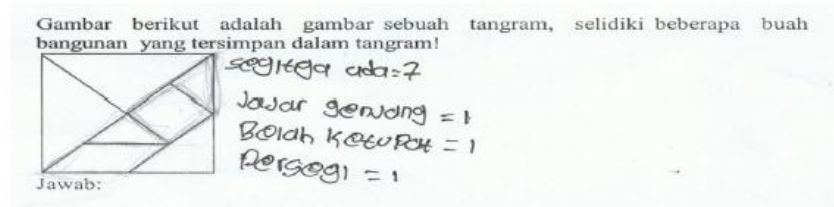 Gambar berikut adalah gambar sebuah tangram, selidiki beberapa buah
bangunan yang tersimpan dalam tangram!
segitiga ada=7
Jajar genjang = 1
Belah Ketupat = 1
Persegi = 1
Jawab: